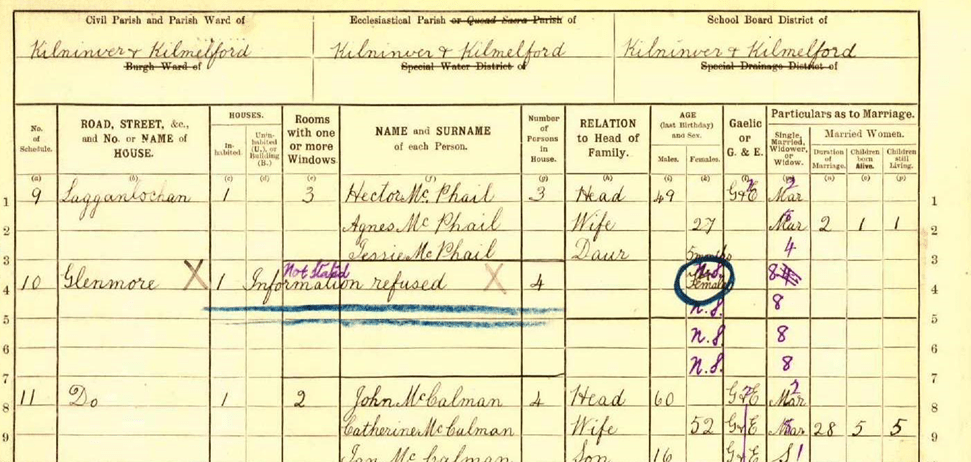 Civil Parish and Parish Ward of
Kilninver & Kilmelford
Burgh Ward of
Ecclesiastical Parish or Quoad Sacra Parish of
Kilninver & Kilmelford
Special Water District of
School Board District of
Kilninver & Kilmelford
Special Drainage District of
No. of Schedule.
ROAD, STREET, &c., and No. or NAME of HOUSE.
HOUSES.
In-habited
Unin-habited (U.), or Building (B.)
Rooms with one or more Windows.
NAME and SURNAME of each Person.
Number of Persons in House.
RELATION to Head of Family.
AGE (last Birthday) and Sex.
Males. Females.
Gaelic or G. & E.
Particulars as to Marriage.
Single, Married, Widower, or Widow.
Married Women.
Duration of Marriage. Children born Alive. Children still Living.
(a) (b) (c) (d) (e) (f) (g) (h) (i) (k) (l) (m) (n) (o) (p)
1 9 Lagganlochan 1 3 Hector Mc Phail 3 Head 49 G&E Mar 2 1
2 Agnes Mc Phail Wife 27 Mar 2 1 1 2
3 Jessie Mc Phail Daur 5 months 4 3
Not Stated
4 10 Glenmore X 1 Information refused X 4 N.S. Female 8 4
5 n.S. 8 5
6 n.S. 8 6
7 n.S. 8 7
8 11 Do 1 2 John McCalman 4 Head 60 G&E Mar 2 8
9 Catherine McCalman Wife 52 G&E Mar 28 5 5 9
Ian McCalman Son 16 G&E S 1